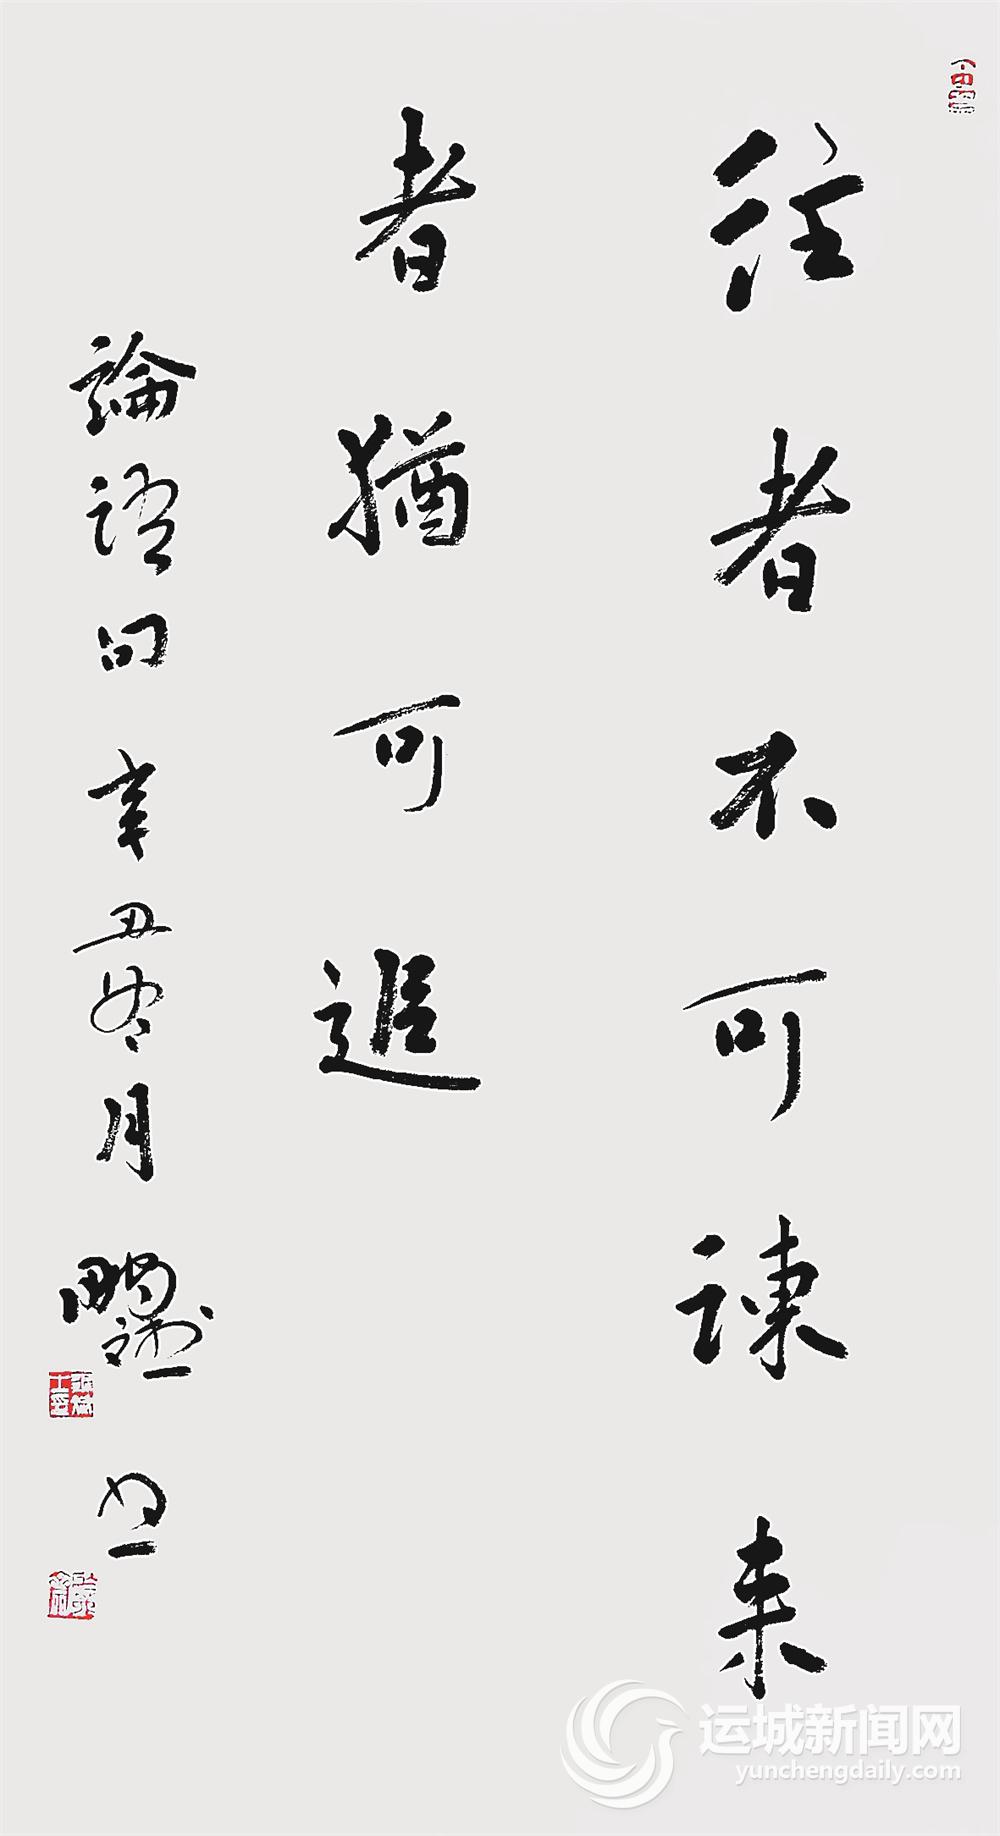 往者不可谏来
者猶可追
論語句 辛丑冬月
运城新闻网
yunchengdaily.com